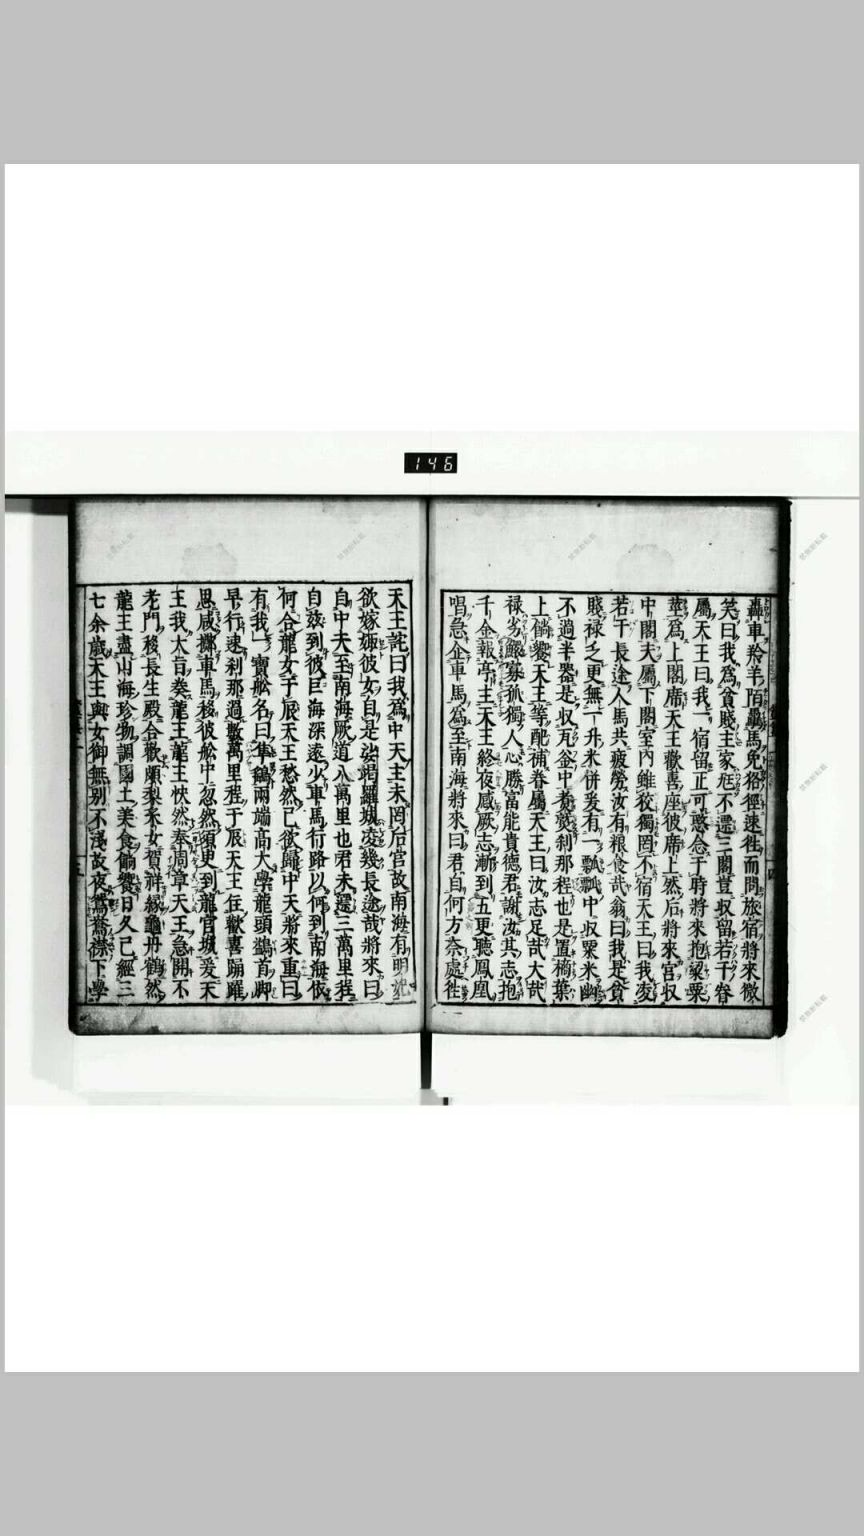 146
轟車羚羊陌驫馬免
徑速徃而問旅宿將來微
笑曰我爲貧賤主家尩不還三閣豈収留若干眷
屬天王曰我一宿留正可憨念于時將來抱梁粟
莖爲上閣席天王歡喜座彼席上然后將來官収
中閣夫屬下閣室內雖狡獨罔不宿天王曰我凌
若干長途人馬共疲勞汝有粮食哉翁曰我是貧
賤禄乏更無一升米併爰有一瓢瓢中収粟米幽
不過半器是収瓦釡中煑熒刹那程也是置楠葉
上僃饗天王等配補眷屬天王曰汝志足哉大哉
禄劣鰥寡孤獨人心勝富能貴德君謝汝其志抱
千金報亭主天王終夜感厥志漸到五更聽鳳凰
唱急企車馬爲至南海將來曰君自何方奈處徃
天王詫曰我爲中天主未罔后宮故南海有明
欲嫁婳彼女自是娑竭羅城凌幾長途哉將來曰
自中夫至南海厥道八萬里也君未還三萬里程
自兹到彼巨海深遠少車馬行路以何到南海依
何合龍女于辰天王愁然已欲歸中天將來重曰
有我寶舩名曰隼鷂兩端高大學龍頭鷁首脚
早行速刹那過數萬里程于辰天王在歡喜踊躍
思咸擲車馬移彼舩中忽然須更到龍宮城爰天
王我太旨奏龍王龍王怏然奉周章天王急開不
老門移長生殿合歡頗梨釆女賀祥縁龜舟鶴然
龍王盡山海珍物調國土美食餉饗日久已經三
七余歳天王與女御無別不淺故夜鴛鴦襟下學